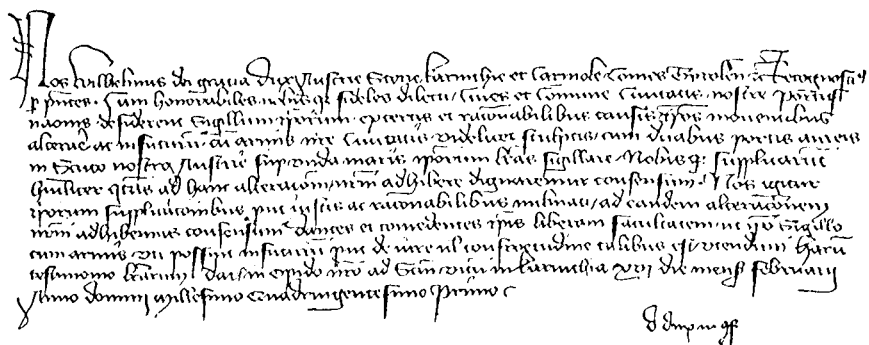 Nos Wilhelmus dei gracia Dux Austrie Stirie Karinthie et Carniole Comes Tyrolen̄ &c Recognoscim̄
p pn̄tes. Cum honorabiles fideles dilecti Cives et Comune Civitatis nostre Portus
naonis desiderent Sigillum ipsorum ex certis et racionabilibus causis ip̄os moventibus
alterare ac insitum cū armis nr̄e Civitatis videlicet sculptis cum duabus portis aureis
in Scuto nostro Austrie sup unda maris ip̄orum l̄ras sigillare Nobisq̄ supplicarūt
huiliter q̄tus ad hanc alteracōm nr̄m adhibere dignaremur consensum. Nos igitur
ip̄orum supplicacōnibus put iustis ac racōnabilibus inclinati ad eandem alteracōnem
nr̄m adhibemus consensum dantes et concedentes ip̄is liberam facultatem ut ip̄o Sigillo
cum armis uti possint put de iure vel consuetudine talibus est utendum Harū
testimonio l̄rarum Dat in opido nr̄o ad Sm̄ vitū in karinthia xvi die mens̄ februarii
Anno domini Millesimo Quadringentesimo Primo
d dux